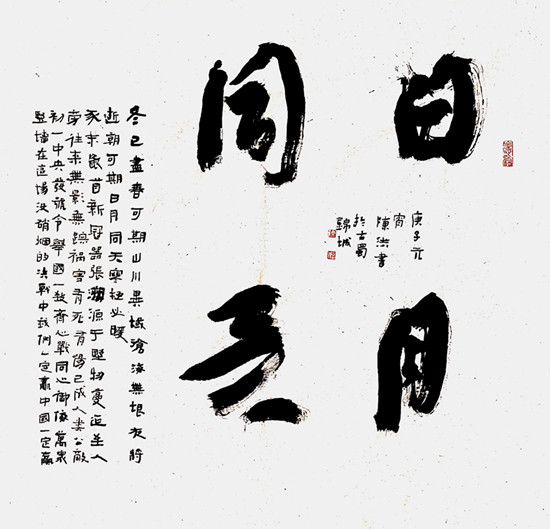 日月
同天
庚子元
宵
陳洪書
於古蜀
錦城
冬已盡春可期山川異域滄海無垠夜將
近朝可期日月同天寒極必暖
豕末歲首新冠囂張溯源于野物蔓延至人
往來無影無蹤禍害有死有傷已成人类公敵
初一中央發號令舉國一致齊心戰同心御疫萬衆
在這場没硝烟的決戰中我們一定赢中國一定赢